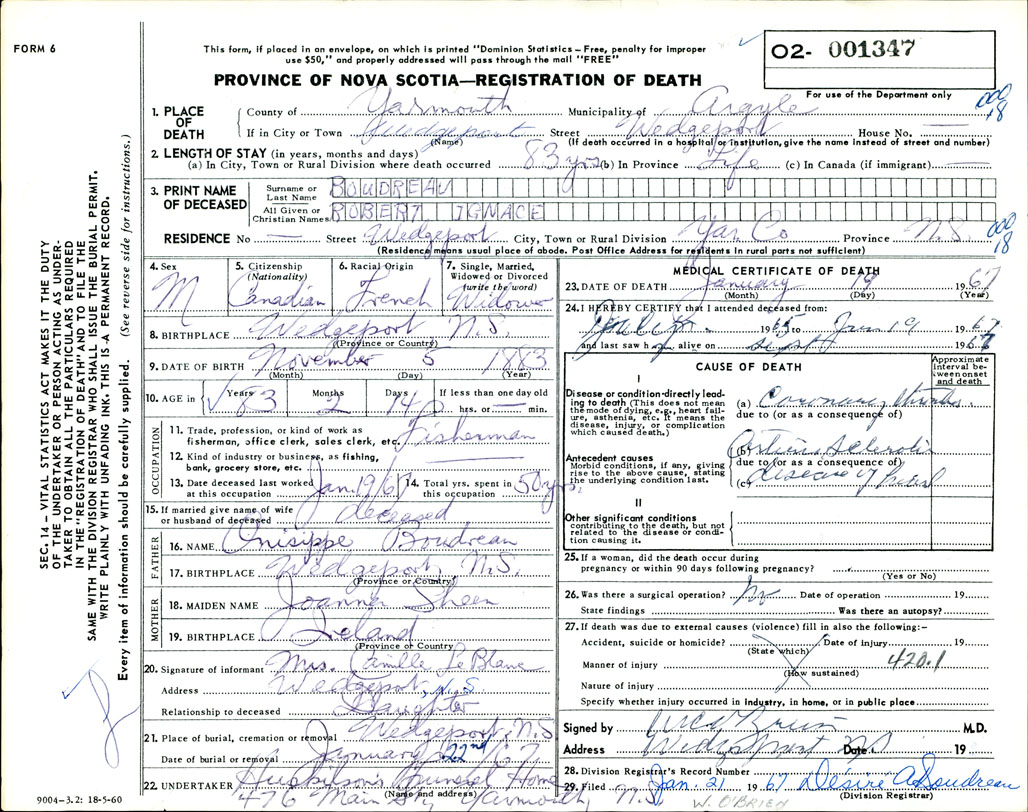 FORM 6
This form, if placed in an envelope, on which is printed "Dominion Statistics – Free, penalty for improper
use $50," and properly addressed will pass through the mail "FREE"
O2- 001347
PROVINCE OF NOVA SCOTIA—REGISTRATION OF DEATH
For use of the Department only
1. PLACE OF DEATH
County of Yarmouth Municipality of Argyle
000 18
If in City or Town Wedgeport Street Wedgeport House No. —
(Name) (If death occurred in a hospital or institution, give the name instead of street and number)
2. LENGTH OF STAY (in years, months and days)
(a) In City, Town or Rural Division where death occurred 83 yrs (b) In Province Life (c) In Canada (if immigrant) —
3. PRINT NAME OF DECEASED
Surname or Last Name BOUDREAU
All Given or Christian Names ROBERT IGNACE
RESIDENCE No — Street Wedgeport City, Town or Rural Division Yar. Co Province N.S.
000 18
(Residence means usual place of abode. Post Office Address for residents in rural parts not sufficient)
4. Sex M
5. Citizenship (Nationality) Canadian
6. Racial Origin French
7. Single, Married, Widowed or Divorced (write the word) Widower
8. BIRTHPLACE Wedgeport N.S.
(Province or Country)
9. DATE OF BIRTH November 5 1883
(Month) (Day) (Year)
10. AGE in Years 83 Months 2 Days 14 If less than one day old
hrs. or — min.
OCCUPATION
11. Trade, profession, or kind of work as
fisherman, office clerk, sales clerk, etc. Fisherman
12. Kind of industry or business, as fishing,
bank, grocery store, etc. —
13. Date deceased last worked
at this occupation Jan. 19/67
14. Total yrs. spent in
this occupation 50 yrs.
15. If married give name of wife
or husband of deceased deceased
FATHER
16. NAME Onisippe Boudreau
17. BIRTHPLACE Wedgeport, N.S.
(Province or Country)
MOTHER
18. MAIDEN NAME Joanna Sheen
19. BIRTHPLACE Ireland
(Province or Country
20. Signature of informant Mrs. Camille LeBlanc
Address Wedgeport, N.S.
Relationship to deceased Daughter
21. Place of burial, cremation or removal Wedgeport, N.S.
Date of burial or removal January 22nd 67
22. UNDERTAKER Huskilson's Funeral Home
(Name and address)
476 Main St., Yarmouth, N.S.
MEDICAL CERTIFICATE OF DEATH
23. DATE OF DEATH January 19 1967
(Month) (Day) (Year)
24. I HEREBY CERTIFY that I attended deceased from:
1965 to Jan 19 1967
and last saw h alive on Sept 196
CAUSE OF DEATH
Approximate interval between onset and death
I
Disease or condition directly leading to death (This does not mean the mode of dying, e.g., heart failure, asthenia, etc. It means the disease, injury, or complication which caused death.)
(a) Coronary
due to (or as a consequence of)
Antecedent causes
Morbid conditions, if any, giving rise to the above cause, stating the underlying condition last.
(b)
due to (or as a consequence of)
(c) disease of
II
Other significant conditions
contributing to the death, but not related to the disease or condition causing it.
25. If a woman, did the death occur during
pregnancy or within 90 days following pregnancy?
(Yes or No)
26. Was there a surgical operation? No Date of operation 19
State findings Was there an autopsy?
27. If death was due to external causes (violence) fill in also the following:–
Accident, suicide or homicide? Date of injury 19
(State which)
Manner of injury 420.1
(How sustained)
Nature of injury
Specify whether injury occurred in industry, in home, or in public place
Signed by M.D.
Address Wedgeport NS Date 19
28. Division Registrar's Record Number
29. Filed Jan. 21 1967 Desire A Boudreau
(Division Registrar)
W. O'BRIEN
SEC. 14 – VITAL STATISTICS ACT MAKES IT THE DUTY
OF THE UNDERTAKER OR PERSON ACTING AS UNDER-
TAKER TO OBTAIN ALL THE PARTICULARS REQUIRED
IN THE "REGISTRATION OF DEATH" AND TO FILE THE
SAME WITH THE DIVISION REGISTRAR WHO SHALL ISSUE THE BURIAL PERMIT.
WRITE PLAINLY WITH UNFADING INK. THIS IS A PERMANENT RECORD.
Every item of information should be carefully supplied. (See reverse side for instructions.)
9004–3.2: 18-5-60